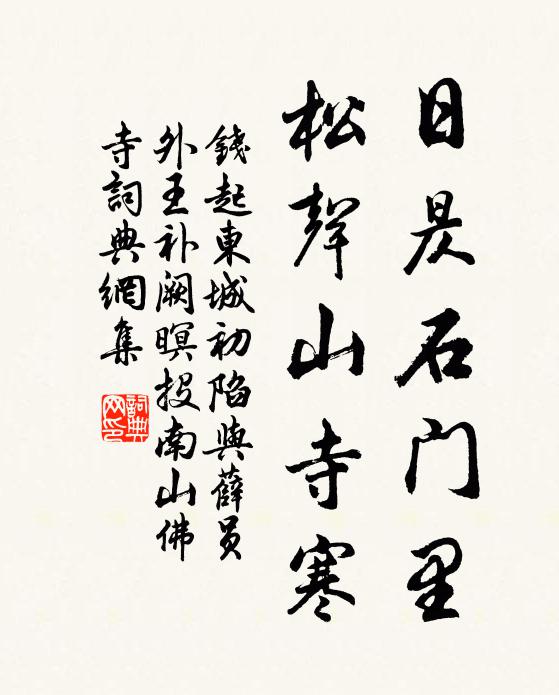 日昃石门里
松聲山寺寒
錢起東城初陷與薛员
外王补闕暝投南山佛
寺詞典網集
詞典
网印